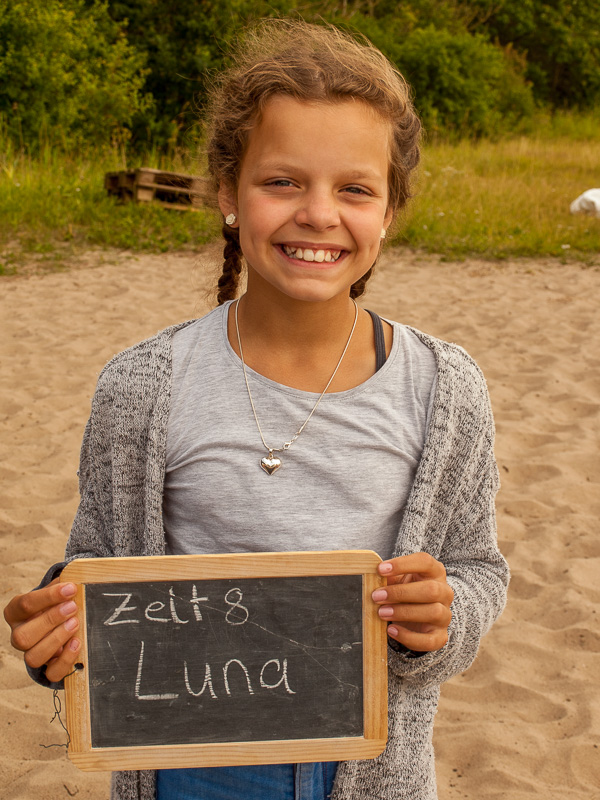 Zeit 8
Luna